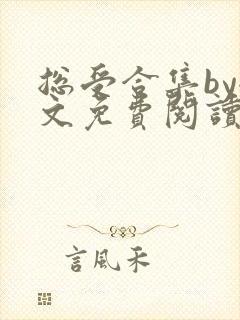 总受合集by
文免費閱讀
言風禾